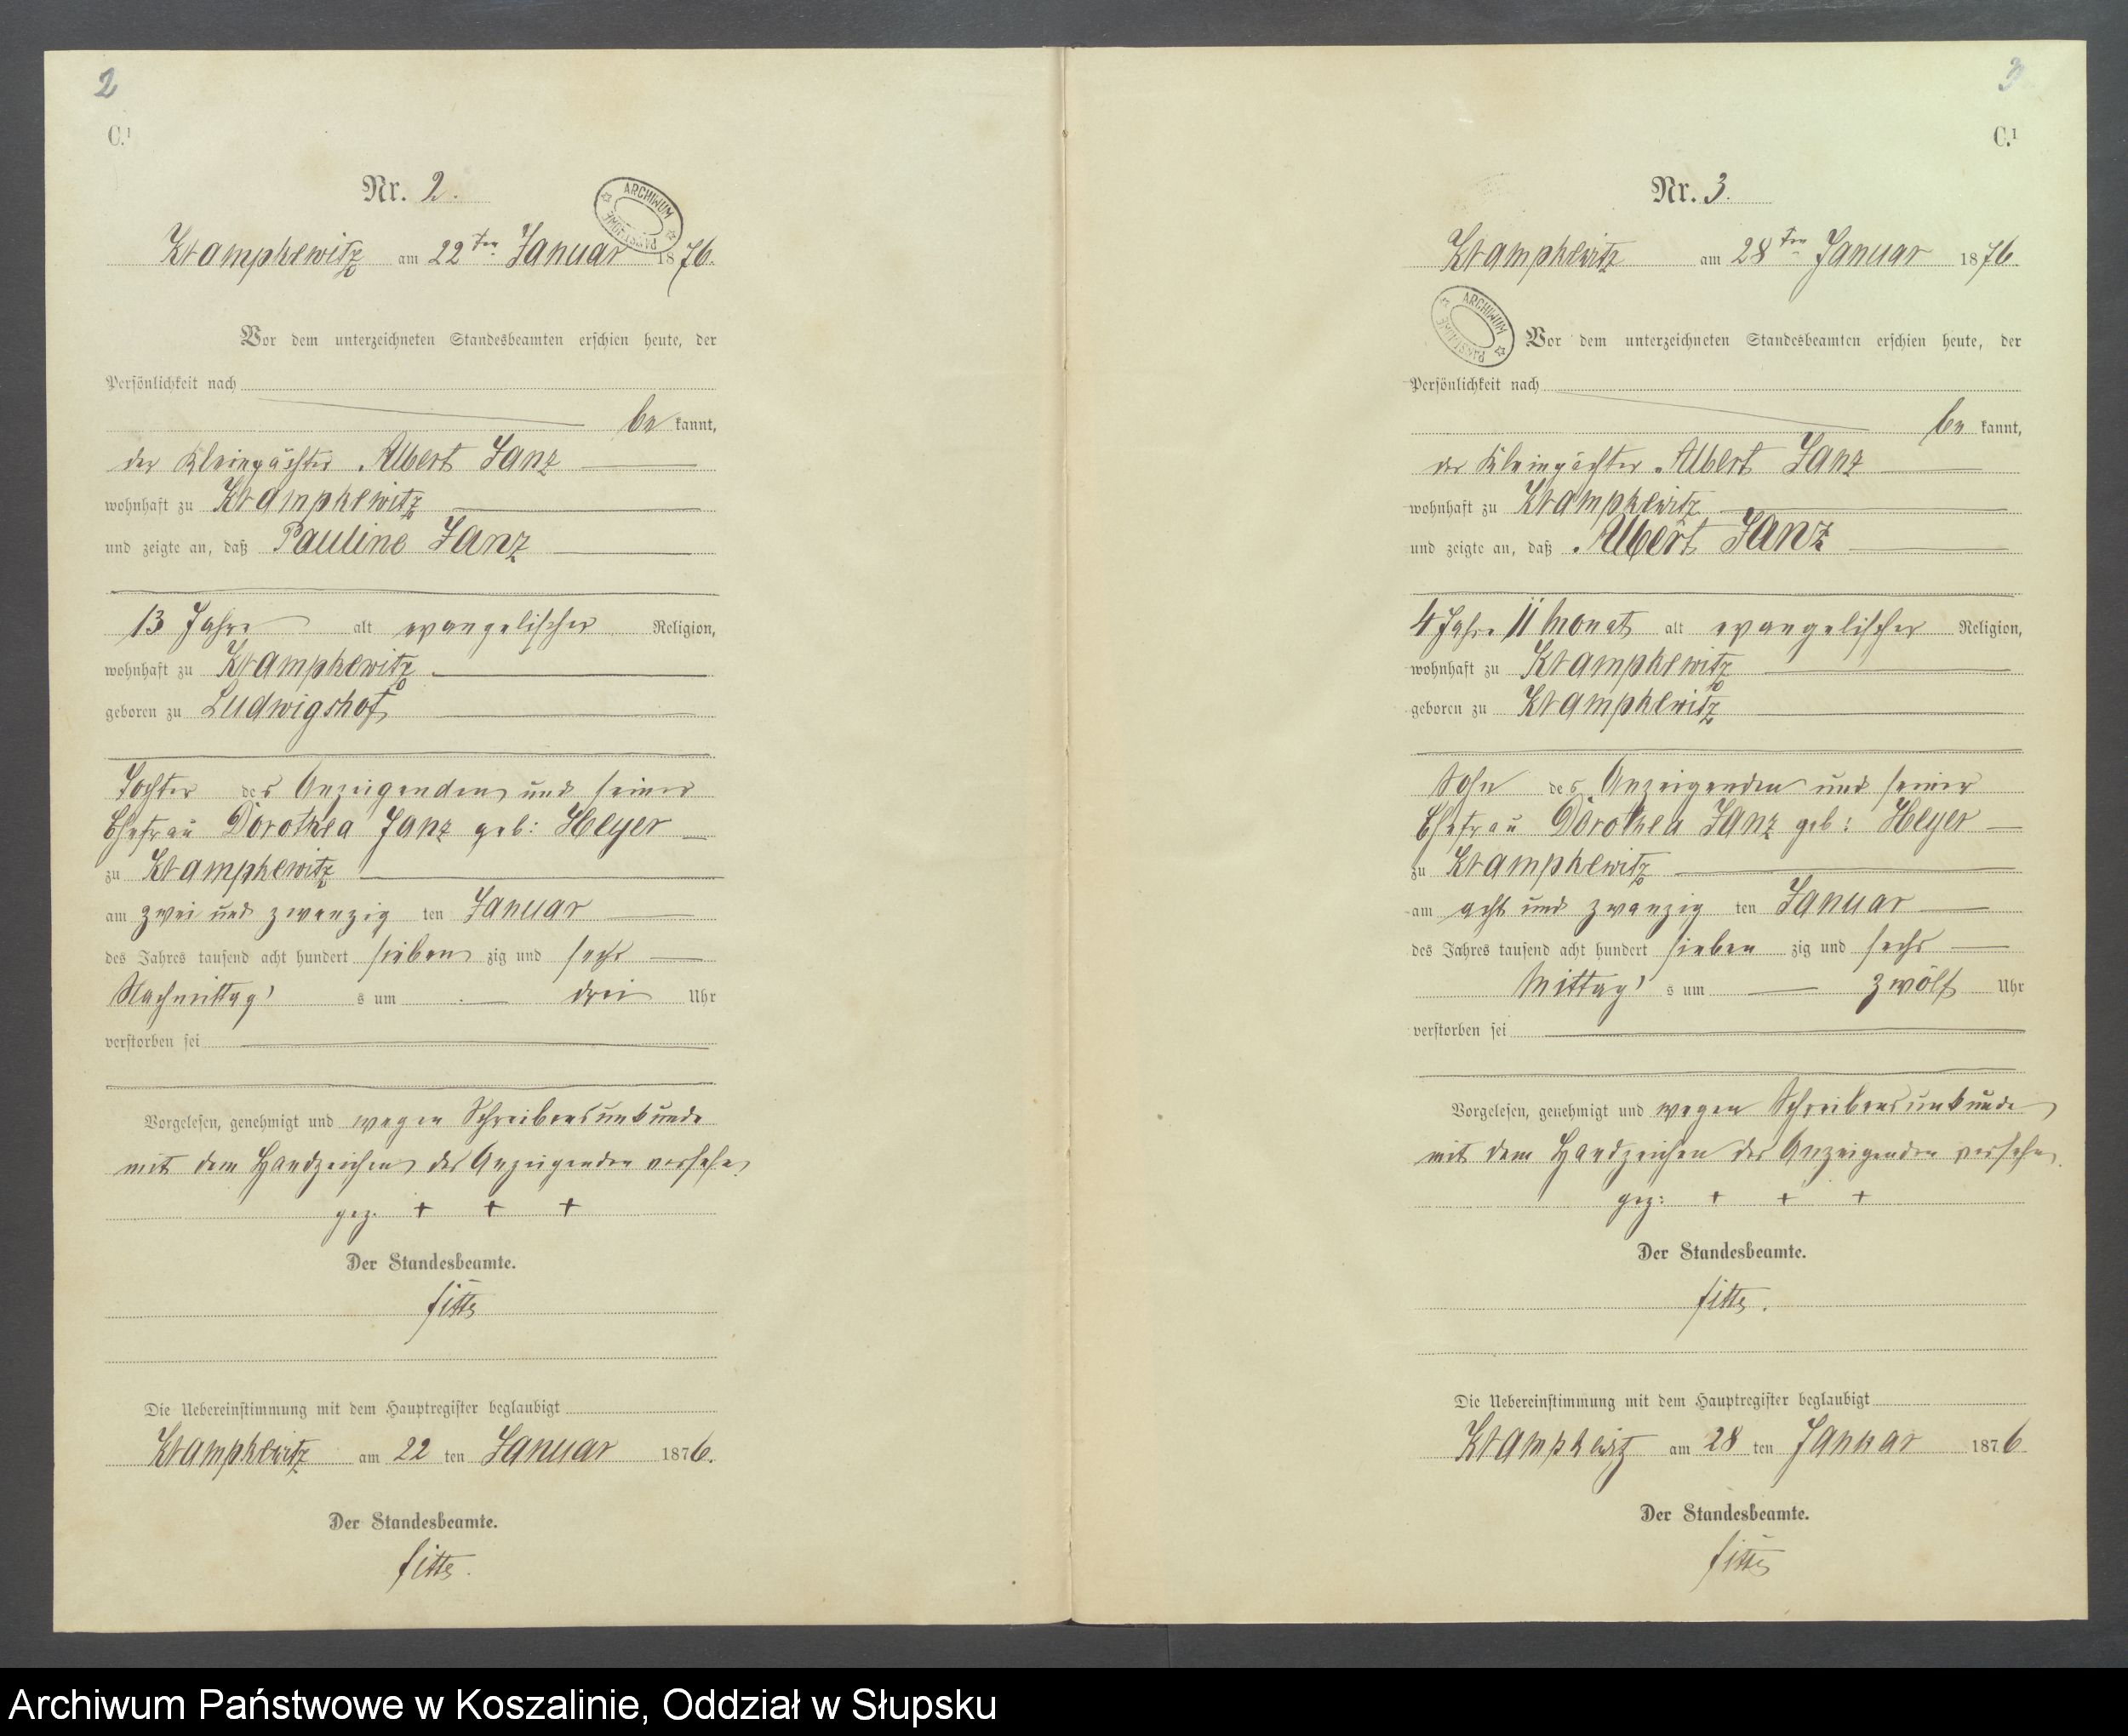 2
C.¹
Nr. 2.
ARCHIWUM PAŃSTWOWE
Krampkewitz am 22ten Januar 1876.
Vor dem unterzeichneten Standesbeamten erschien heute, der
Persönlichkeit nach
be kannt,
der Kleinpächter Albert Janz
wohnhaft zu Krampkewitz
und zeigte an, daß Pauline Janz
13 Jahre alt evangelischer Religion,
wohnhaft zu Krampkewitz
geboren zu Ludwigshof
Tochter des Anzeigenden und seiner
Ehefrau Dorothea Janz geb: Heyer
zu Krampkewitz
am zwei und zwanzig ten Januar
des Jahres tausend acht hundert sieben zig und sechs
Nachmittag's um drei Uhr
verstorben sei
Vorgelesen, genehmigt und wegen Schreibensunkunde
mit dem Handzeichen des Anzeigenden versehen.
gez. + + +
Der Standesbeamte.
Die Uebereinstimmung mit dem Hauptregister beglaubigt
Krampkewitz am 22 ten Januar 1876.
Der Standesbeamte.
3
C.¹
Nr. 3.
Krampkewitz am 28ten Januar 1876
ARCHIWUM PAŃSTWOWE
Vor dem unterzeichneten Standesbeamten erschien heute, der
Persönlichkeit nach
be kannt,
der Kleinpächter Albert Janz
wohnhaft zu Krampkewitz
und zeigte an, daß Albert Janz
4 Jahre 11 Monat alt evangelischer Religion,
wohnhaft zu Krampkewitz
geboren zu Krampkewitz
Sohn des Anzeigenden und seiner
Ehefrau Dorothea Janz geb: Heyer
zu Krampkewitz
am acht und zwanzig ten Januar
des Jahres tausend acht hundert sieben zig und sechs
Mittag's um zwölf Uhr
verstorben sei
Vorgelesen, genehmigt und wegen Schreibensunkunde
mit dem Handzeichen des Anzeigenden versehen.
gez: + + +
Der Standesbeamte.
Die Uebereinstimmung mit dem Hauptregister beglaubigt
Krampkewitz am 28 ten Januar 1876
Der Standesbeamte.
Archiwum Państwowe w Koszalinie, Oddział w Słupsku